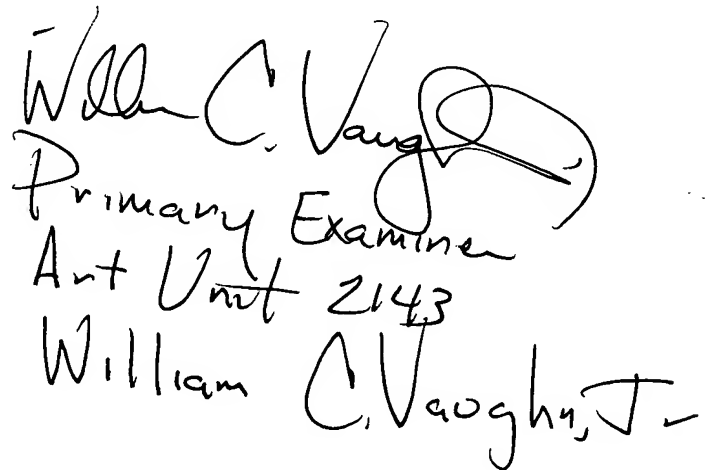 William C. Vaughn, Jr
Primary Examiner
Art Unit 2143
William C. Vaughn, Jr